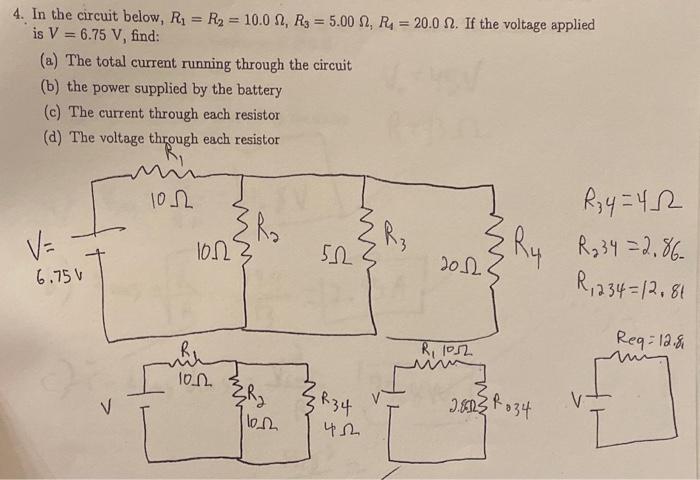 4. In the circuit below, R₁ = R₂ = 10.0 Ω, R₃ = 5.00 Ω, R₄ = 20.0 Ω. If the voltage applied
is V = 6.75 V, find:
(a) The total current running through the circuit
(b) the power supplied by the battery
(c) The current through each resistor
(d) The voltage through each resistor
R₁
10Ω
V=
6.75V
10Ω
R₂
5Ω
R₃
20Ω
R₄
R34=4Ω
R234=2.86
R1234=12.86
R₁
10Ω
V
R₂
10Ω
R34
4Ω
R₁ 10Ω
V
Req=12.8
V